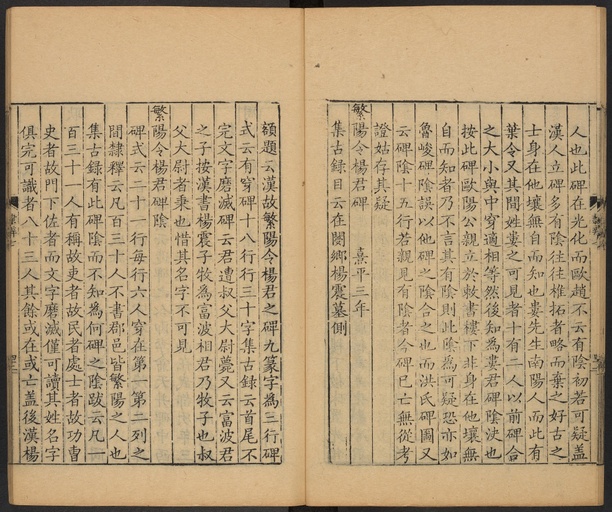 人也此碑在光化而歐趙不云有陰初若可疑蓋
漢人立碑多有陰往往椎拓者略而棄之好古之
士身在他壤無自而知也婁先生南陽人而此有
葉令又其間姓婁之可見者十有二人以前碑合
之大小與中穿適相等然後知為婁君碑陰決也
按此碑歐陽公親立於敕書樓下非身在他壤無
自而知者乃不言其有陰則此陰為可疑恐亦如
魯峻碑陰誤以他碑之陰合之也而洪氏碑圖又
云碑陰十五行若親見有陰者今碑已亡無從考
證姑存其疑
繁陽令楊君碑 熹平三年
集古錄目云在閿鄉楊震墓側
額題云漢故繁陽令楊君之碑九篆字為三行碑
式云有穿碑十八行行三十字集古錄云首尾不
完文字磨滅碑云君遭叔父太尉薨又云富波君
之子按漢書楊震子牧為富波相君乃牧子也叔
父太尉者秉也惜其名字不可見
繁陽令楊君碑陰
碑式云二十一行每行六人穿在第一第二列之
間隸釋云凡百三十人不書郡邑皆繁陽之人也
集古錄有此碑陰而不知為何碑之陰跋云凡一
百三十一人有稱故吏者故民者處士者故功曹
史者故門下佐者而文字磨滅僅可讀其姓名字
俱完可識者八十三人其餘或在或亡蓋後漢楊